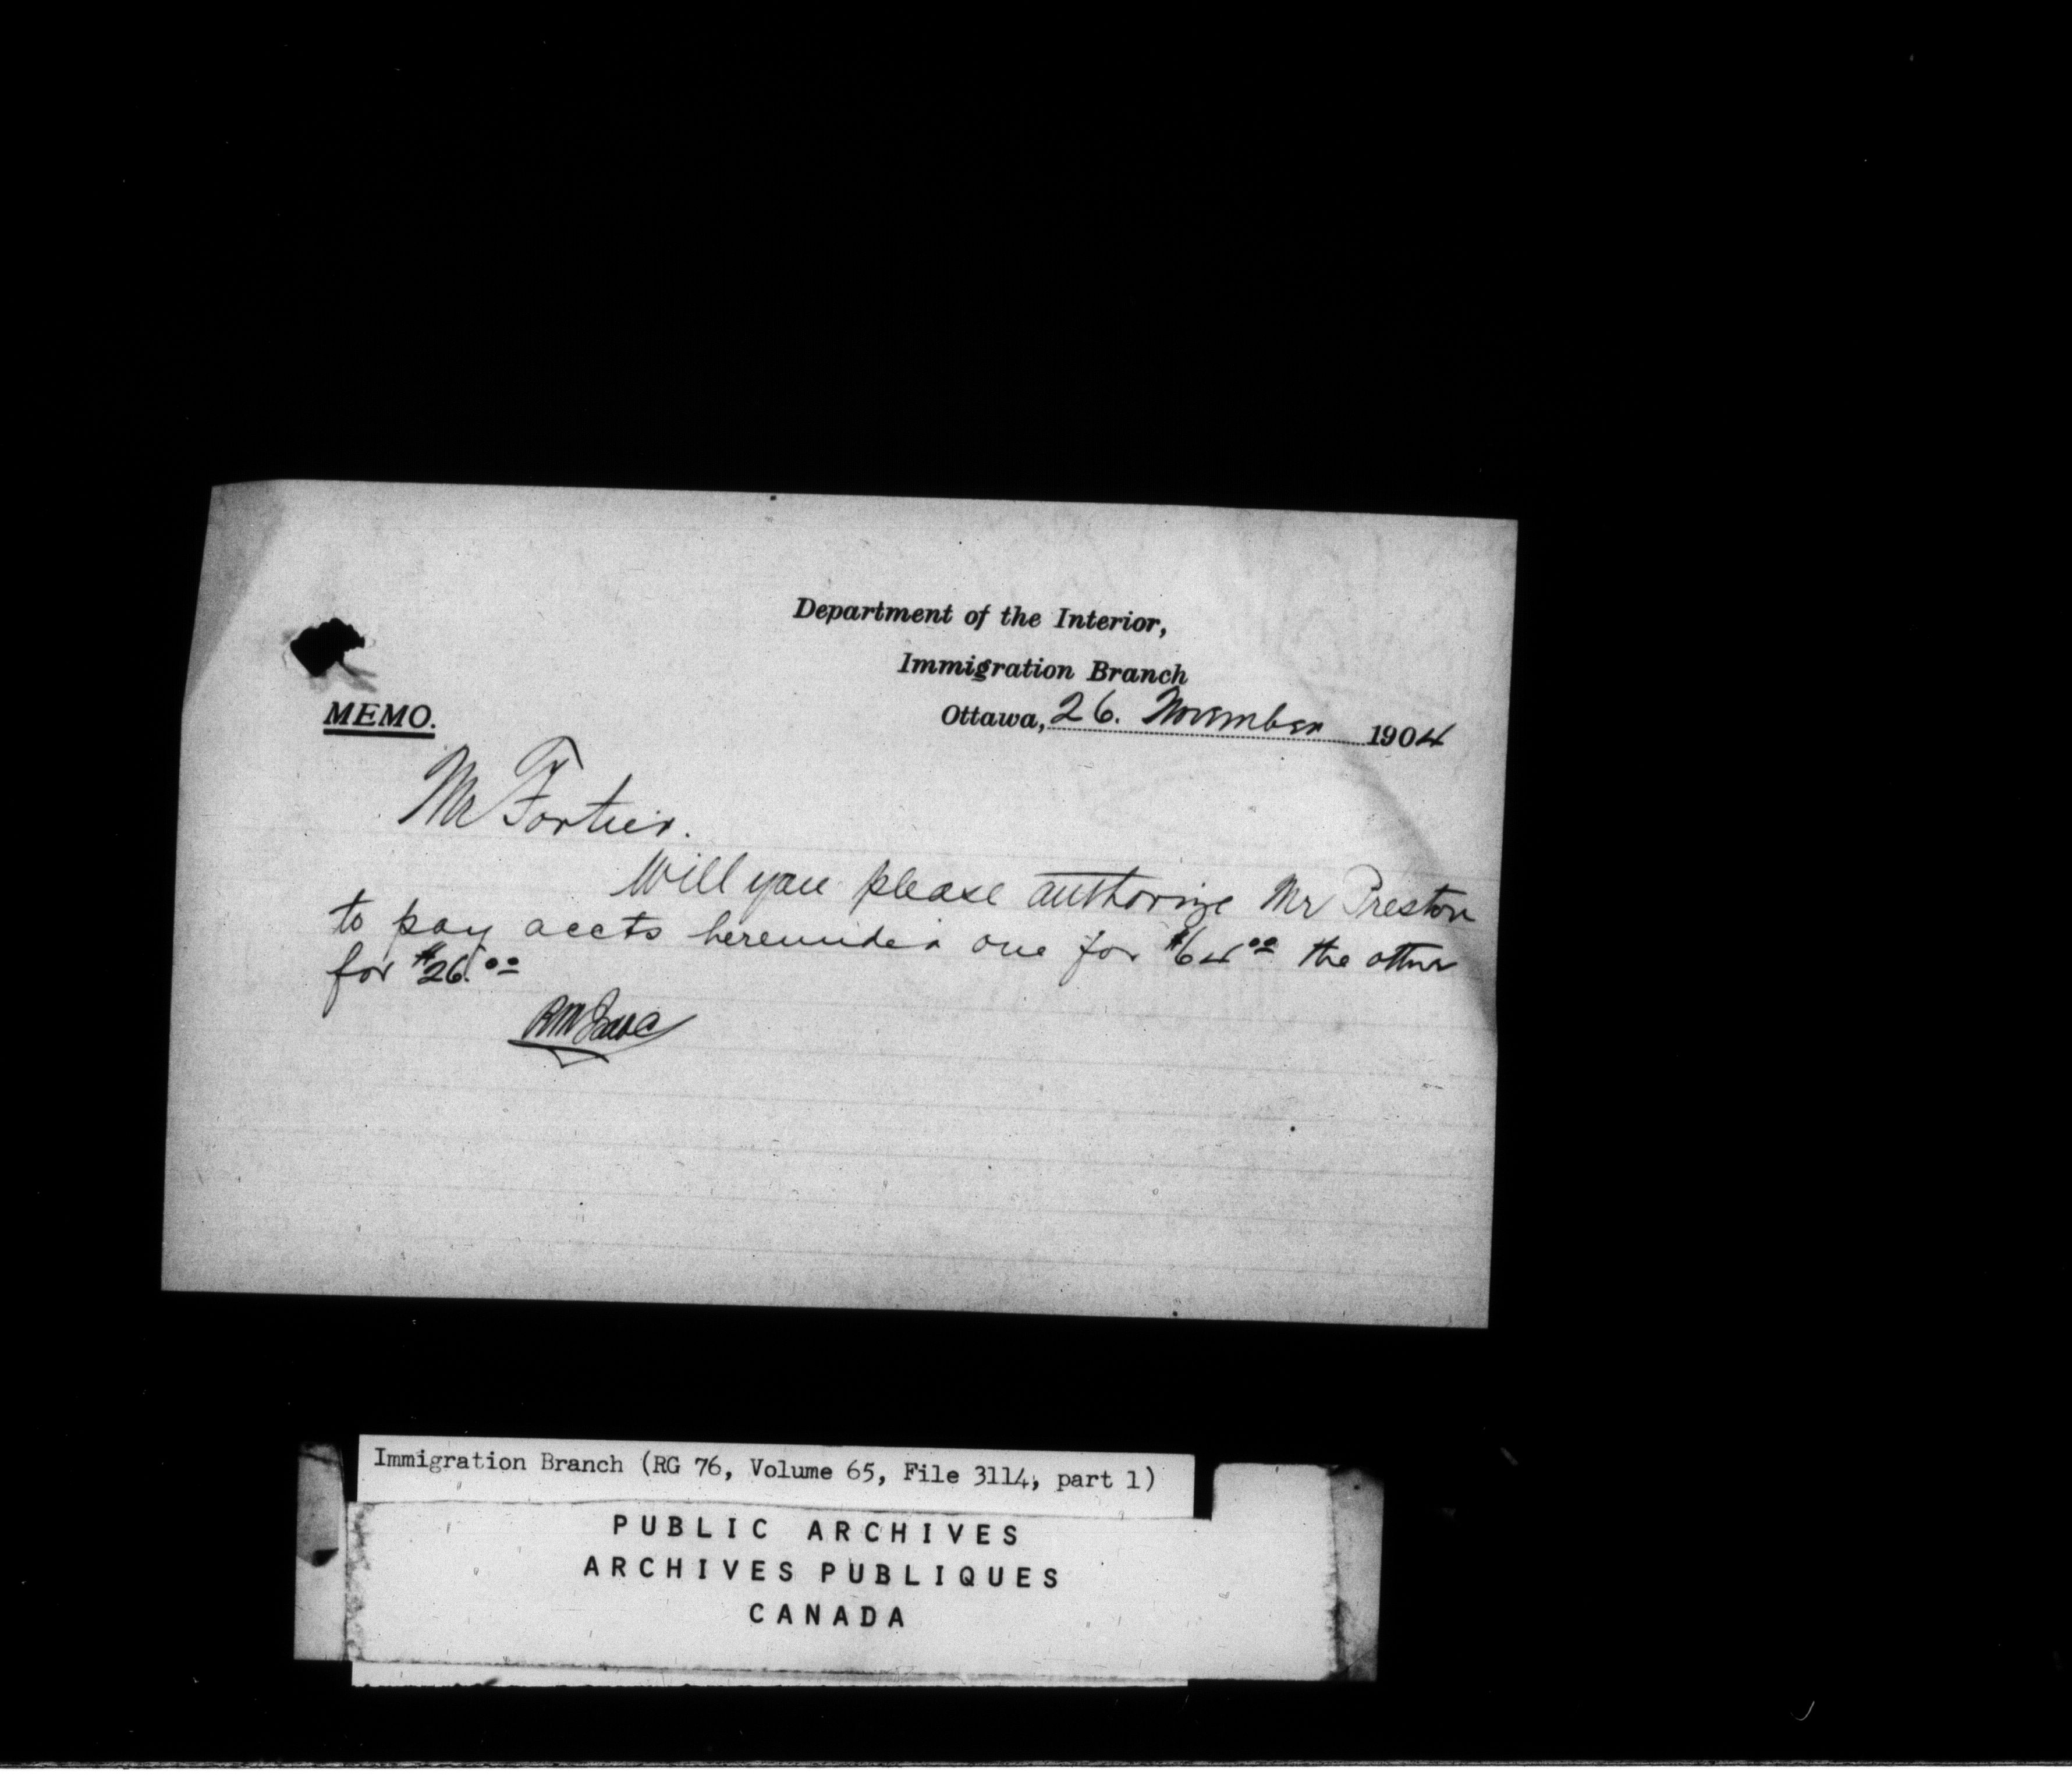 Department of the Interior,
Immigration Branch
MEMO.
Ottawa, 26. November 1904
Mr Fortier.
Will you please authorize Mr Preston
to pay accts hereunder one for $64.00 the other
for $26.00
Immigration Branch (RG 76, Volume 65, File 3114, part 1)
PUBLIC ARCHIVES
ARCHIVES PUBLIQUES
CANADA